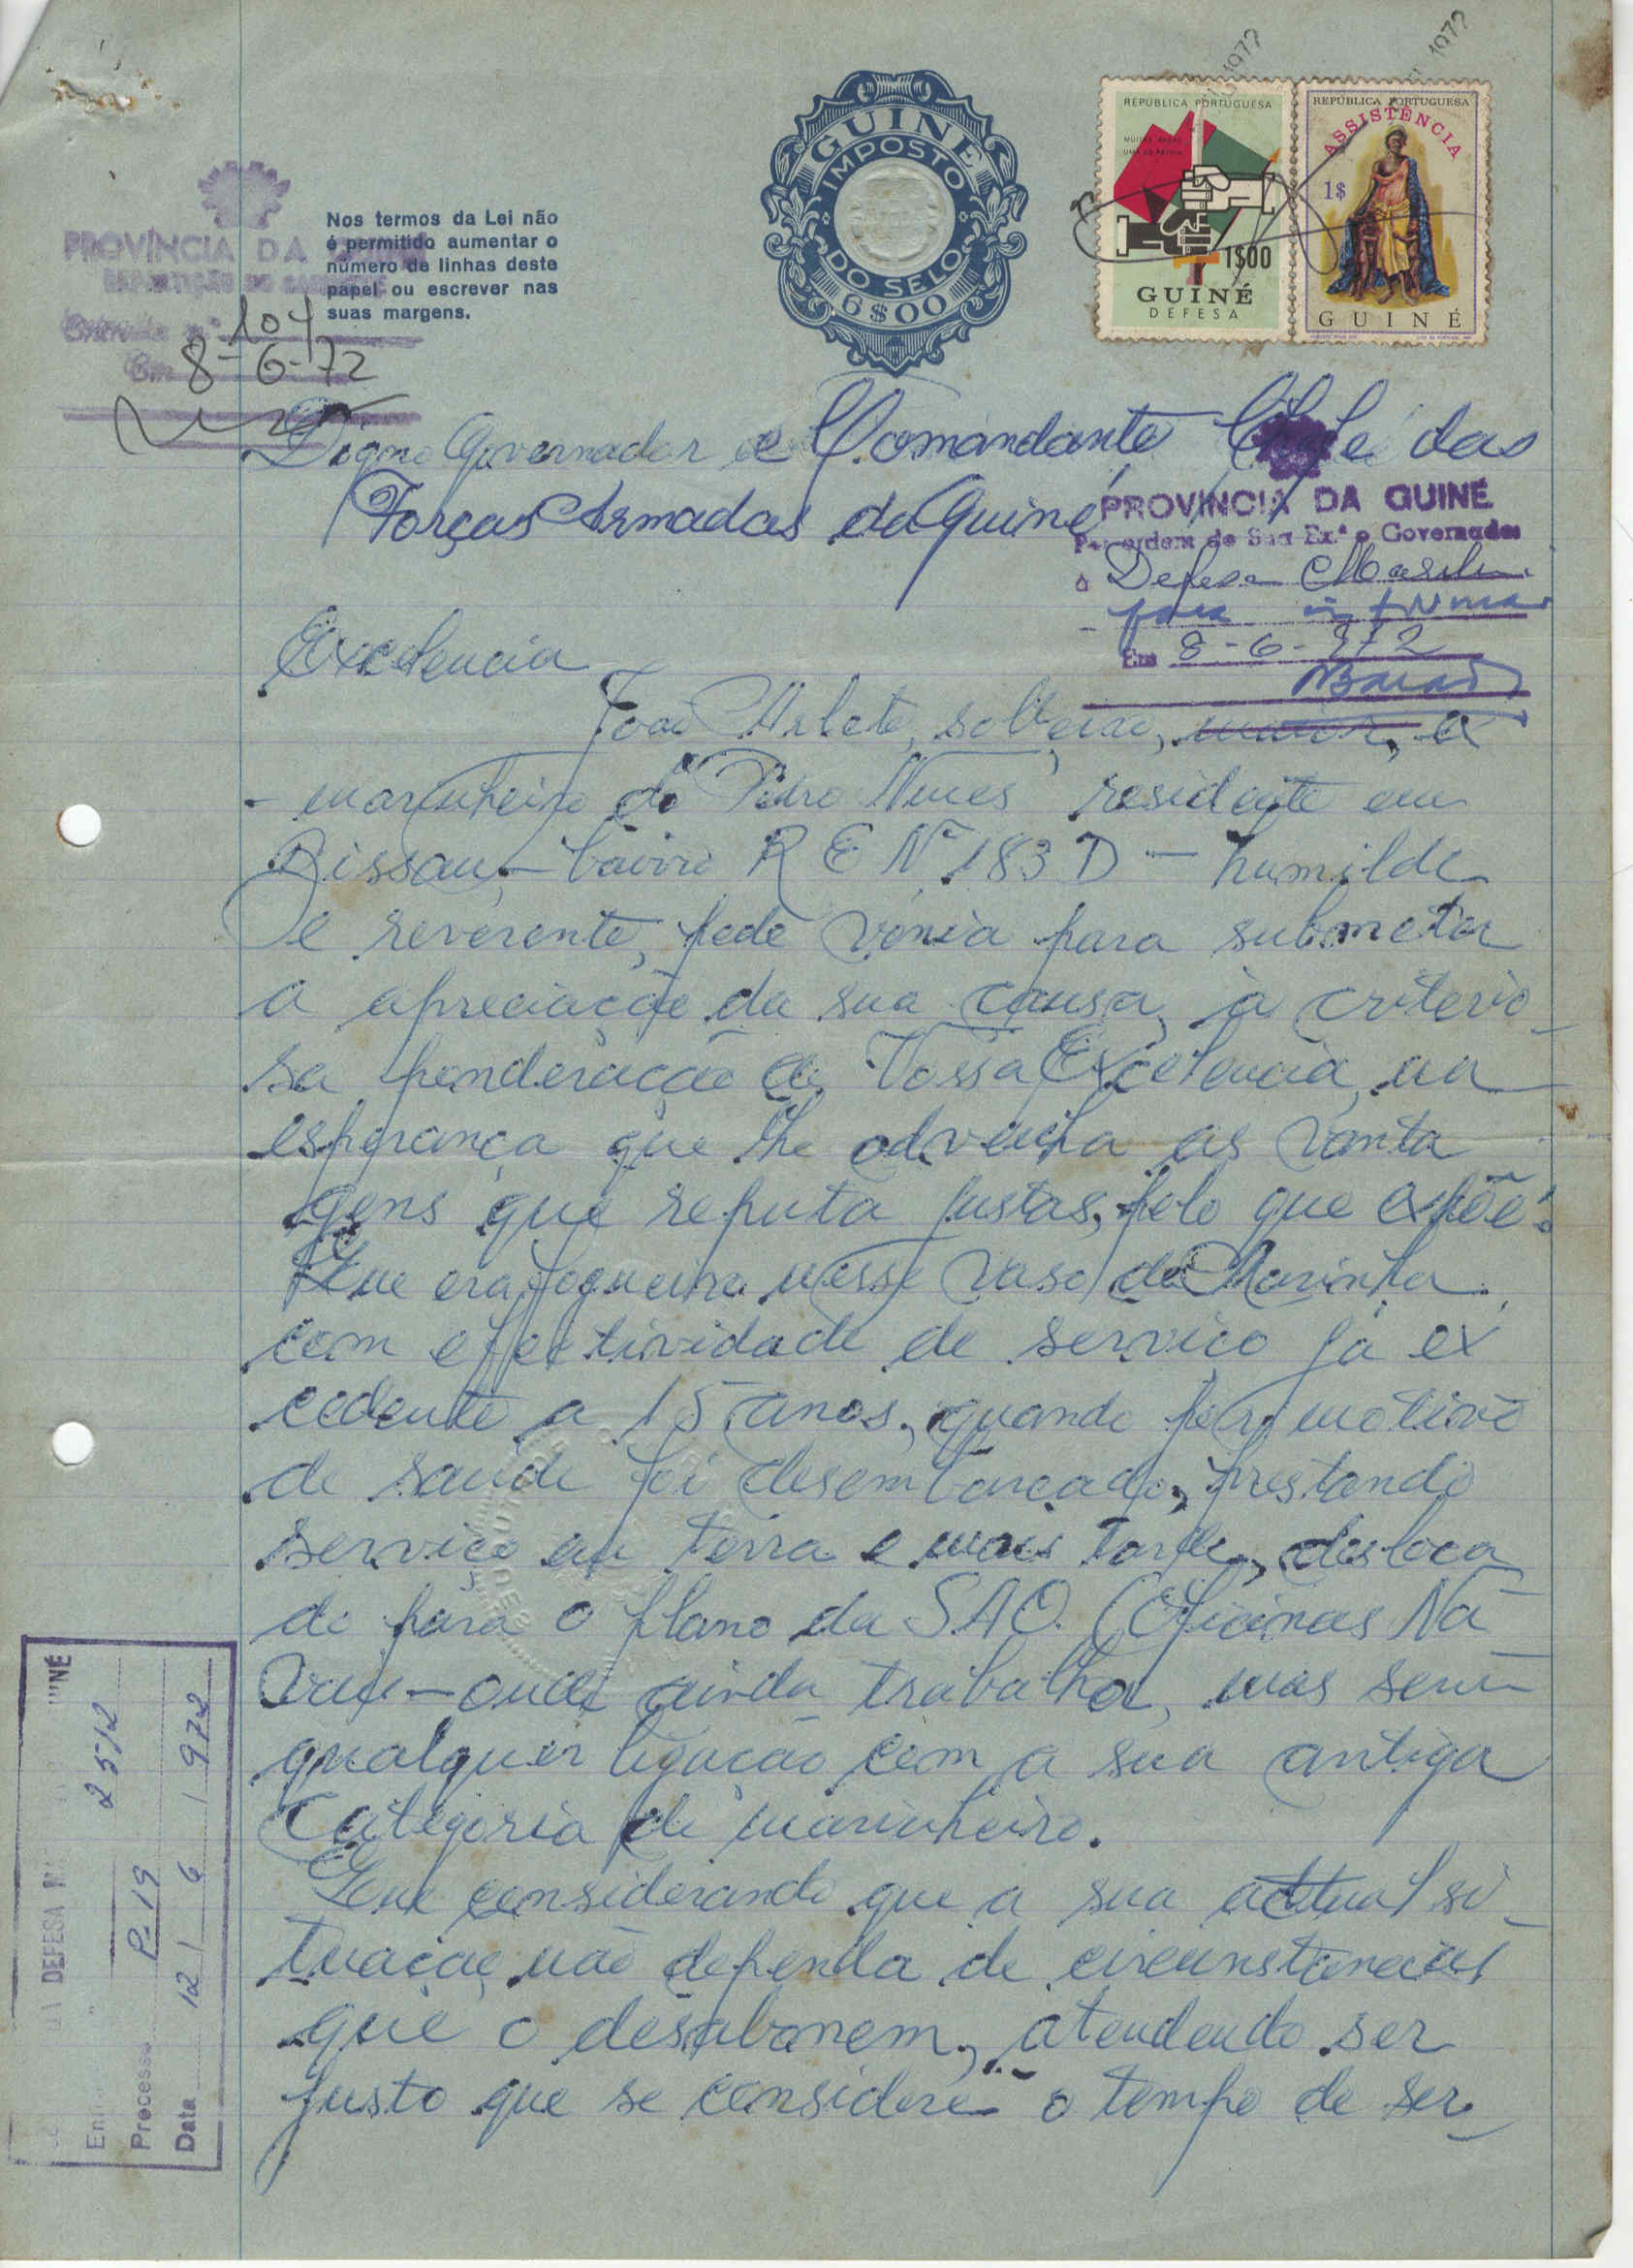 1972
1972
GUINÉ
IMPOSTO
DO SELO
6$00
REPÚBLICA PORTUGUESA
1$00
GUINÉ
DEFESA
REPÚBLICA PORTUGUESA
ASSISTÊNCIA
1$
GUINÉ
PROVÍNCIA DA
Entrada n.º 104
Em 8-6-72
Nos termos da Lei não
é permitido aumentar o
número de linhas deste
papel ou escrever nas
suas margens.
Digno Governador e Comandante Chefe das
Forças Armadas da Guiné
PROVÍNCIA DA GUINÉ
Por ordem de Sua Ex.ª o Governador
à Defesa
para informar
Em 8-6-972
Excelencia
João Arlete, solteiro, maior, ex
- marinheiro do "Pedro Nunes" residente em
Bissau, - bairro R E Nº 183 D - humilde
e reverente, pede vénia para submeter
a apreciação da sua causa, à criterio-
sa ponderação de Vossa Excelencia, na
esperança que lhe advenha as vanta
gens que reputa justas, pelo que expõe:
Que era fogueiro nesse vaso da Marinha
com efectividade de serviço já ex
cedente a 15 anos, quando por motivo
de saude foi desembarcado, prestando
serviço em terra e mais tarde, desloca
do para o plano da S.A.O. (Oficinas Na
vais - onde ainda trabalha, mas sem
qualquer ligação com a sua antiga
categoria de marinheiro.
Que considerando que a sua actual si-
tuação não dependa de circunstancias
que o desabonem, atendendo ser
justo que se considere o tempo de ser-
DA DEFESA
2512
Processo P-19
Data 12 / 6 / 1972